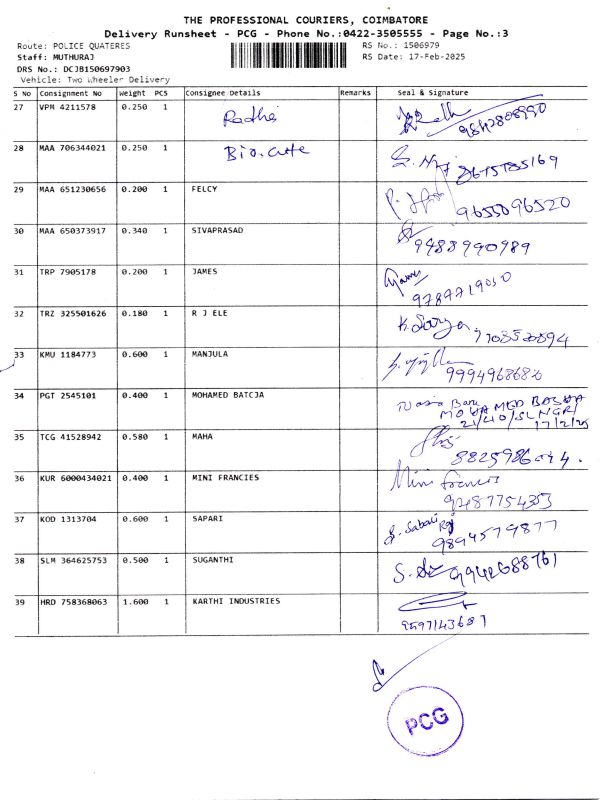 THE PROFESSIONAL COURIERS, COIMBATORE
Delivery Runsheet - PCG - Phone No.:0422-3505555 - Page No.:3
Route: POLICE QUATERES RS No.: 1506979
Staff: MUTHURAJ RS Date: 17-Feb-2025
DRS No.: DCJB150697903
Vehicle: Two Wheeler Delivery
S No Consignment No Weight PCS Consignee Details Remarks Seal & Signature
27 VPM 4211578 0.250 1 Radha 9842808990
28 MAA 706344021 0.250 1 Bio.cute
29 MAA 651230656 0.200 1 FELCY 9655096520
30 MAA 650373917 0.340 1 SIVAPRASAD 9488990989
31 TRP 7905178 0.200 1 JAMES James
9789719050
32 TRZ 325501626 0.180 1 R J ELE K. Soorya
33 KMU 1184773 0.600 1 MANJULA
9994968686
34 PGT 2545101 0.400 1 MOHAMED BATCJA Banu
MOHAMED BASHA
21/40/SL NGR/
17/2/25
35 TCG 41528942 0.580 1 MAHA
36 KUR 6000434021 0.400 1 MINI FRANCIES Mini Francis
9487754353
37 KOD 1313704 0.600 1 SAPARI Sabari Raj
9894579877
38 SLM 364625753 0.500 1 SUGANTHI 9942688761
39 HRD 758368063 1.600 1 KARTHI INDUSTRIES
9597143687
PCG